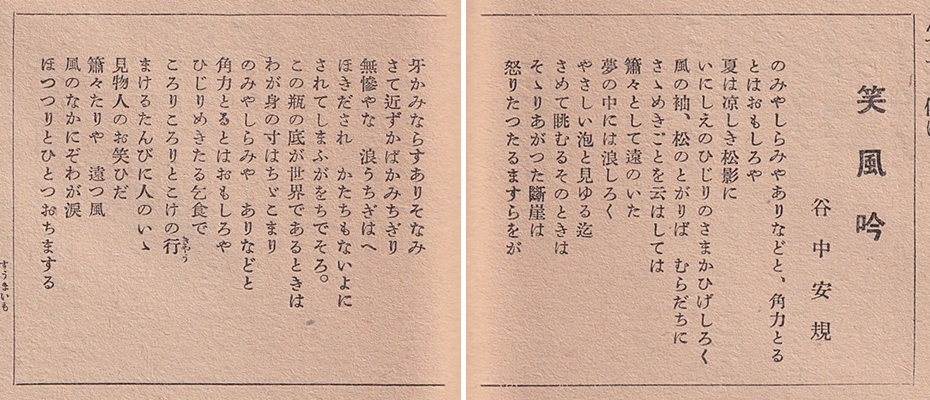 笑風吟
谷中安規
のみやしらみやありなどと、角力とる
とはおもしろや
夏は凉しき松影に
いにしえのひじりのさまかひげしろく
風の袖、松のとがりば　むらだちに
さゝめきごとを云はしては
簫々として遠のいた
夢の中には浪しろく
やさしい泡と見ゆる迄
さめて眺むるそのときは
そゝりあがつた斷崖は
怒りたつたるますらをが
牙かみならすありそなみ
さて近ずかばかみちぎり
無慘やな　浪うちぎはへ
ほきだされ　かたちもないよに
されてしまふがをちでそろ。
この瓶の底が世界であるときは
わが身の寸はちゞこまり
のみやしらみや　ありなどと
角力とるとはおもしろや
ひじりめきたる乞食で
ころりころりとこけの行
きやう
まけるたんびに人のいゝ
見物人のお笑ひだ
簫々たりや　遠つ風
風のなかにぞわが淚
ほつつりとひとつおちまする
すうまいも